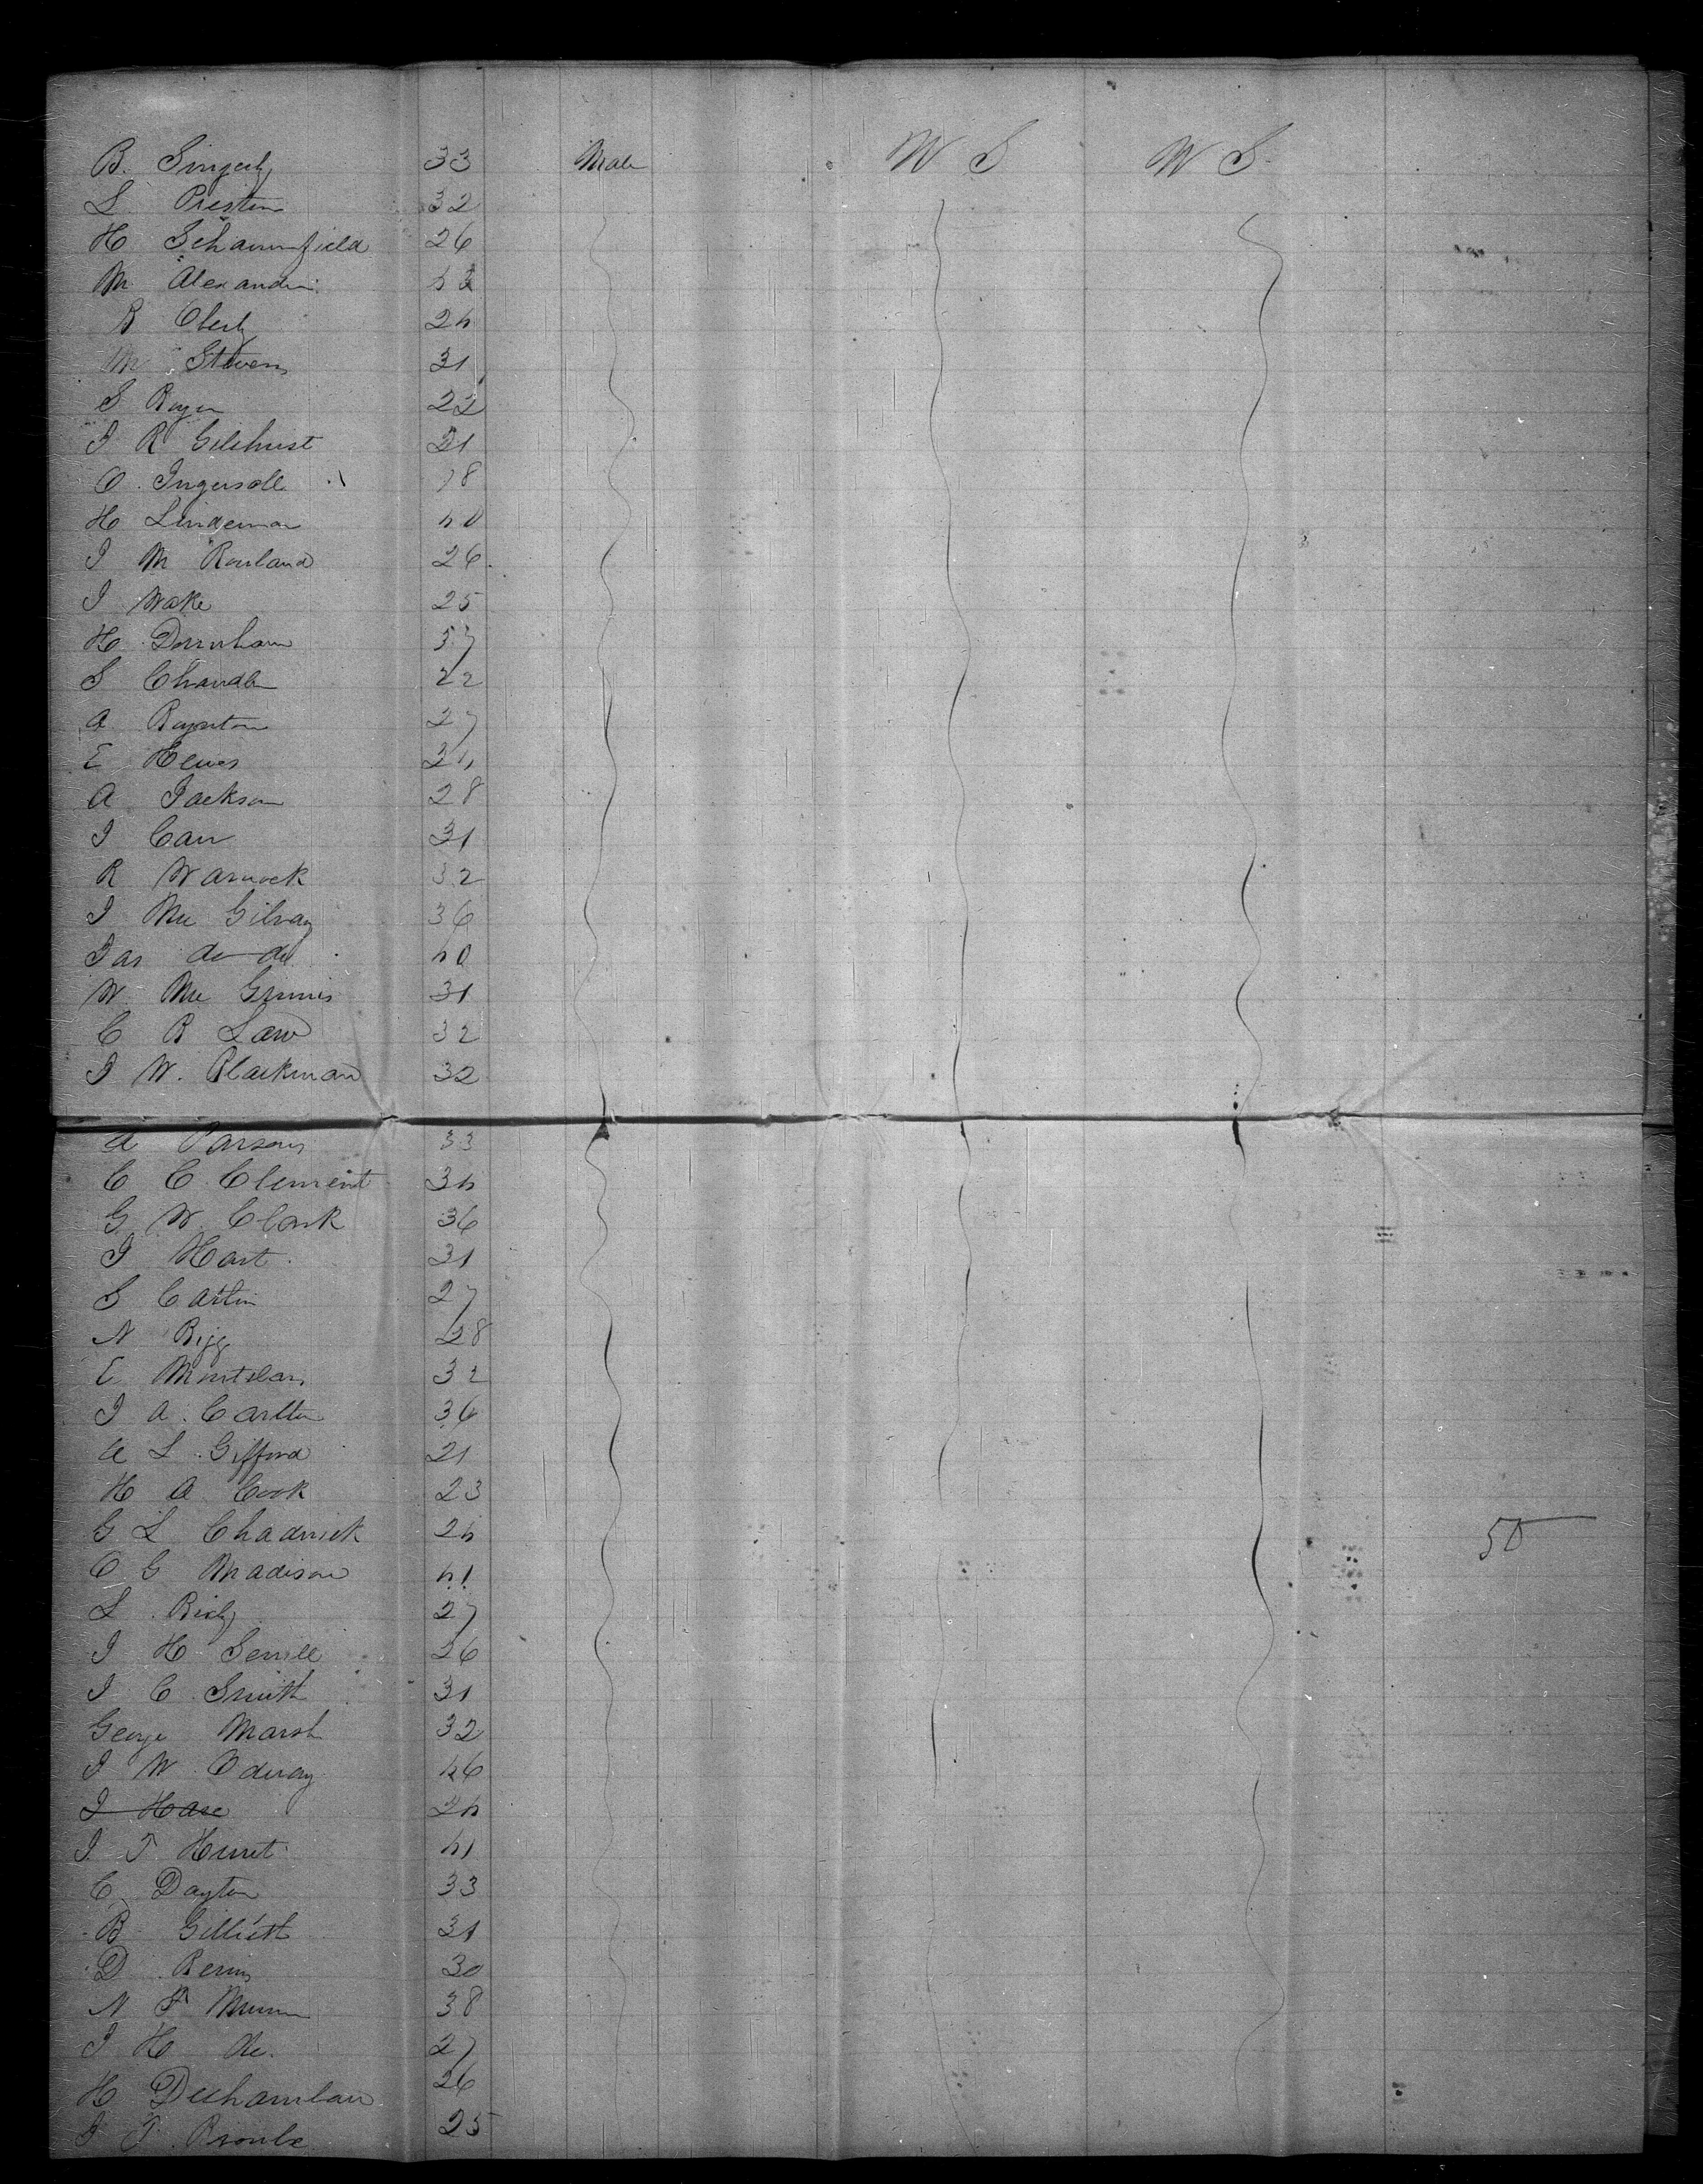 B. Singerly 33 Male W S W S
L Preston 32
H Schaumfield 26
M Alexander 43
B Oberly 24
M Stevens 31
S Boyer 22
J R Gilchrist 21
O. Ingersoll 18
H Lindeman 40
J M Rowland 26
J Wake 25
H Durnham 37
S Chandler 22
A Boynton 27
E Hewes 24
A Jackson 28
J Carr 31
R Warnock 32
J McGilvay 36
Jas do do 40
W. McGinnis 31
C B Law 32
J W. Blackman 32
A Parsons 33
C C Clement 34
G W. Clark 36
J Hart 31
S Catlin 27
N Bigg 28
E 32
J A. Carlton 36
A L Gifford 21
H A Cook 23
G L Chadwick 24 50
C G Madison 41
L 27
J H 26
J C Smith 31
George Marsh 32
J W Odway 46
J Hase 24
J. T Hurret 41
C Dayton 33
B 31
D Bemis 30
N F Munn 38
J H 27
H 26
J T 25